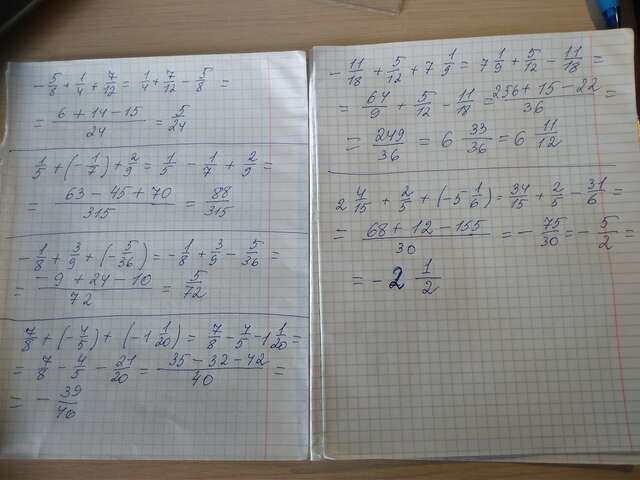 -5/8 + 1/4 + 7/12 = 1/4 + 7/12 - 5/8 =
= (6 + 14 - 15)/24 = 5/24
1/5 + (-1/7) + 2/9 = 1/5 - 1/7 + 2/9 =
= (63 - 45 + 70)/315 = 88/315
-1/8 + 3/9 + (-5/36) = -1/8 + 3/9 - 5/36 =
= (-9 + 24 - 10)/72 = 5/72
7/8 + (-4/5) + (-1 1/20) = 7/8 - 4/5 - 1 1/20 =
= 7/8 - 4/5 - 21/20 = (35 - 32 - 42)/40 =
= - 39/40
-11/18 + 5/12 + 7 1/9 = 7 1/9 + 5/12 - 11/18 =
= 64/9 + 5/12 - 11/18 = (256 + 15 - 22)/36 =
= 249/36 = 6 33/36 = 6 11/12
2 4/15 + 2/5 + (-5 1/6) = 34/15 + 2/5 - 31/6 =
= (68 + 12 - 155)/30 = - 75/30 = - 5/2 =
= - 2 1/2